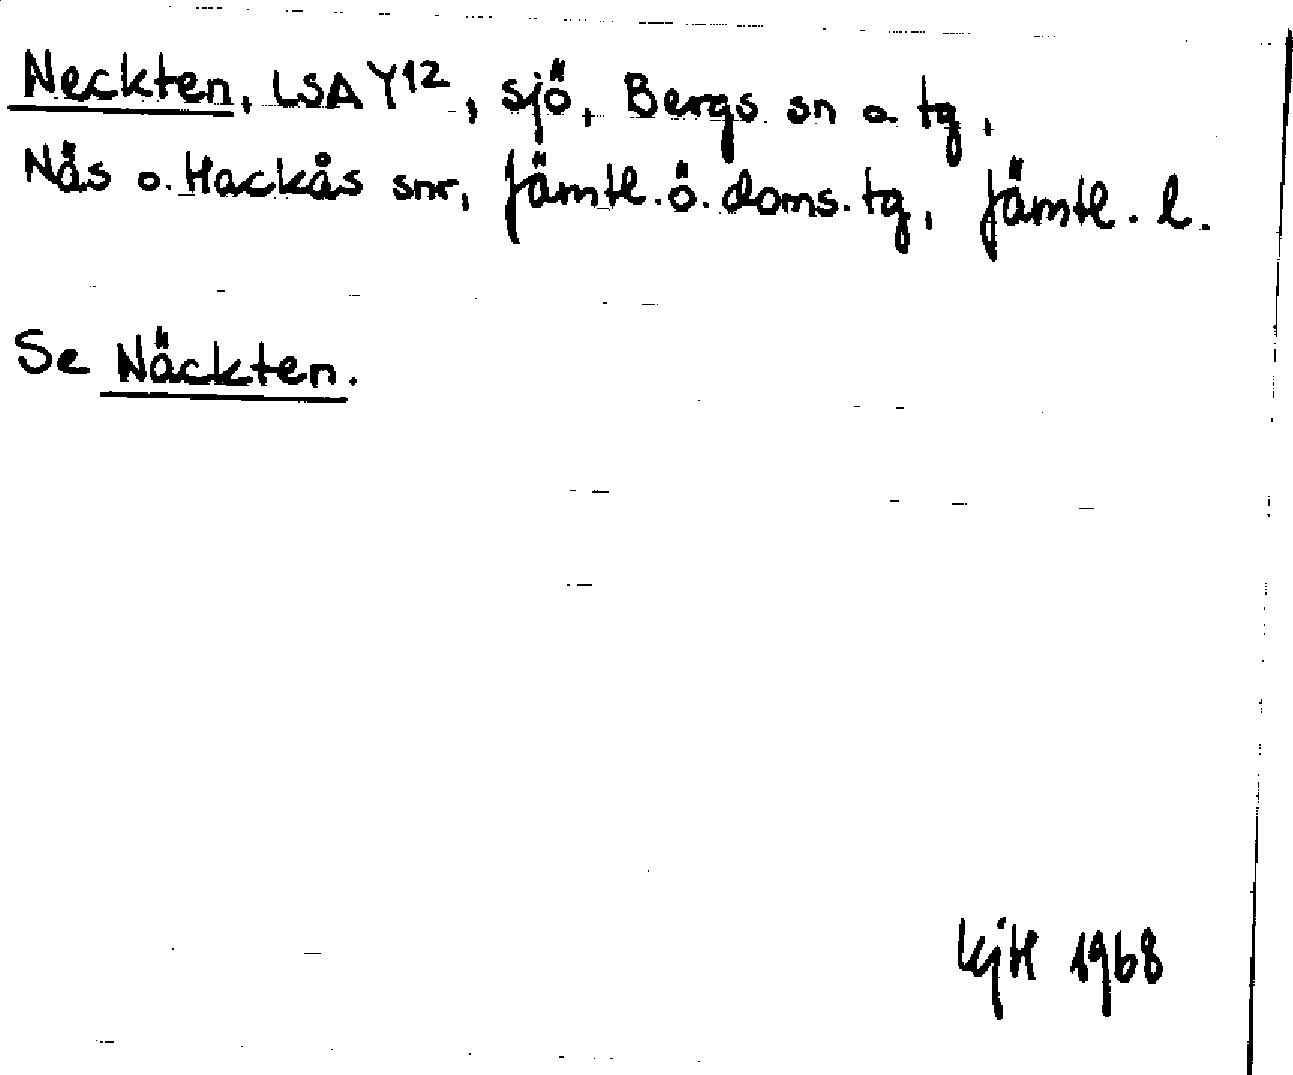 Neckten, LSA Y12, sjö, Bergs sn o tg,
Näs o. Hackås snr, Jämtl. ö. doms. tg, Jämtl. l.
Se Näckten.
KjH 1968